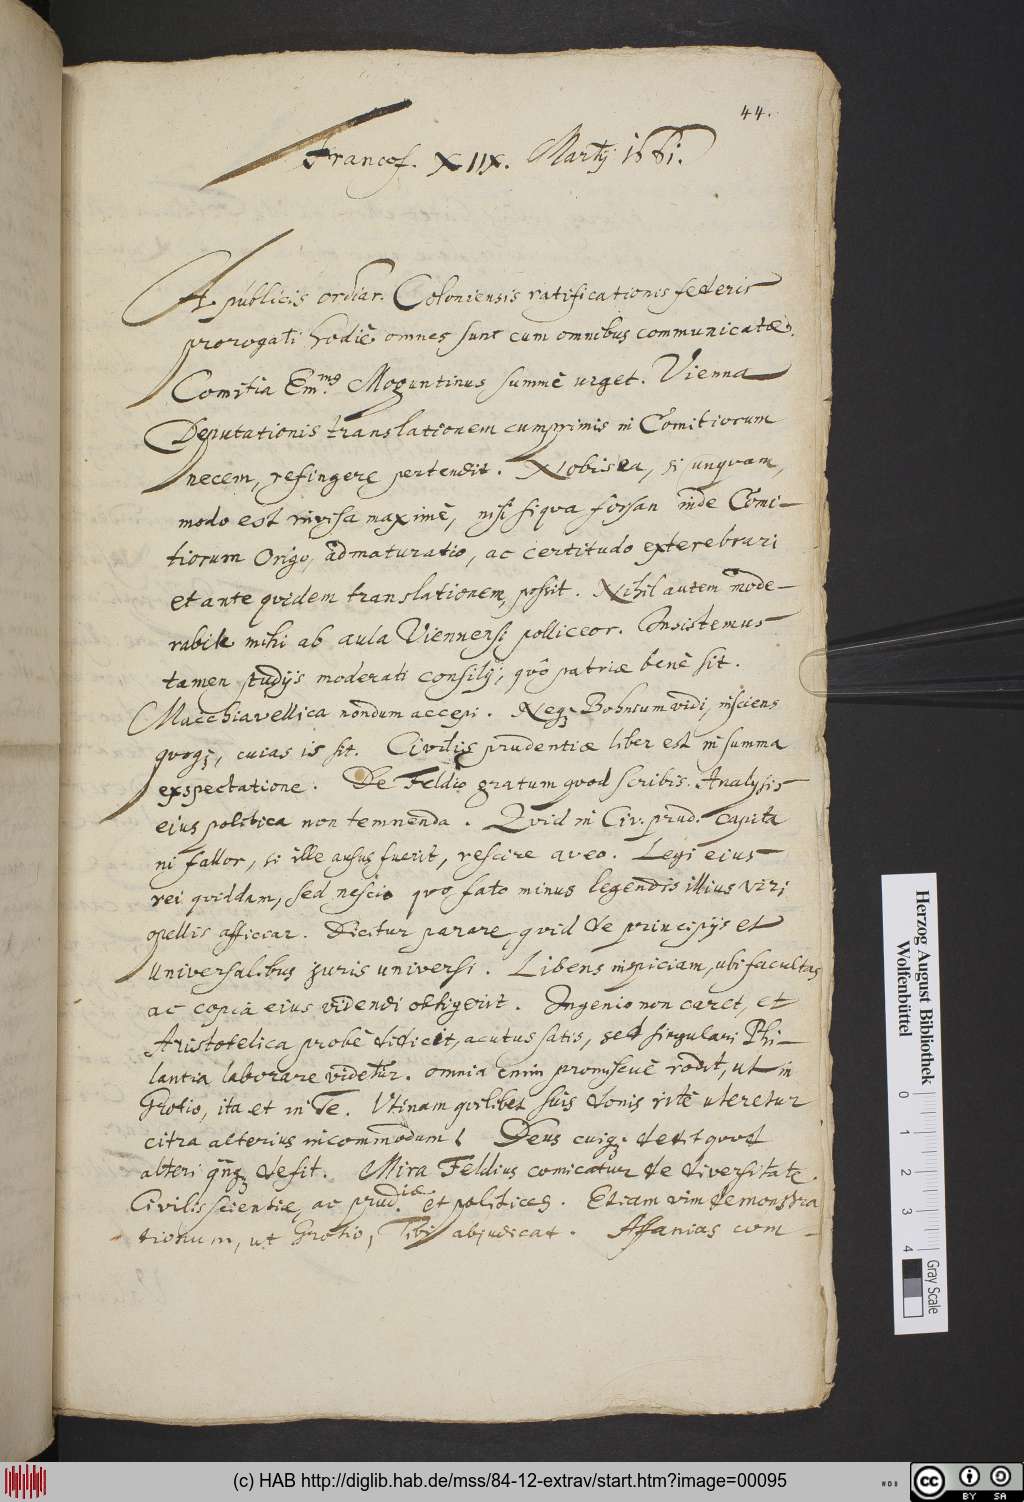 44.
Francof. XIIX. Martij 1661.
A publicis ordiar. Coloniensis ratificationis federis
prorogati hodie omnes sunt cum omnibus communicatæ.
Comitia Em.mg Moguntinus summè urget. Vienna
Deputationis translationem cumprimis in Comitiorum
necem, refingere pertendit. Nobis ea, si unquam,
modo est invisa maximè, nisi siqva forsan inde Comi-
tiorum origo, admaturatio, ac certitudo exterebrari
et ante qvidem translationem, possit. Nihil autem mode-
rabile mihi ab aula Viennensi polliceor. Insistemus
tamen studijs moderati consilij, quô patriæ benè sit.
Macchiavellica nondum accepi. Neqȝ Bohnium vidi, insciens
qvoqȝ, cuias is sit. Civilis prudentiæ liber est in summa
exspectatione. De Feldio gratum quod scribis. Analysis
eius politica non temnenda. Qvid in Civ. prud. capita
ni fallor, si ille ausus fuerit, rescire aveo. Legi eius
rei qviddam, sed nescio qvo fato minus legendis illius viri
opellis afficear. Dicitur parare qvid de principijs et
universalibus juris universi. Libens inspiciam, ubi facultas
ac copia eius videndi obtigerit. Ingenio non caret, et
Aristotelica probè didicit, acutus satis, sed singulari Phi-
lantia laborare videtur. omnia enim promiscuè rodit, ut in
Grotio, ita et in Te. Vtinam qvilibet suis donis ritè uteretur
citra alterius incommodum! Deus cuiqȝ dedit quod
alteri qñqȝ desit. Mira Feldius comicatur de diversitate
Civilis scientiæ, ac prud.iæ et politices. Etiam vim demonstra
tionum, ut Grotio, Tibi abjudicat. Affanias com-
Herzog August Bibliothek
Wolfenbüttel
0 1 2 3 4
Gray Scale
(c) HAB http://diglib.hab.de/mss/84-12-extrav/start.htm?image=00095
cc BY SA